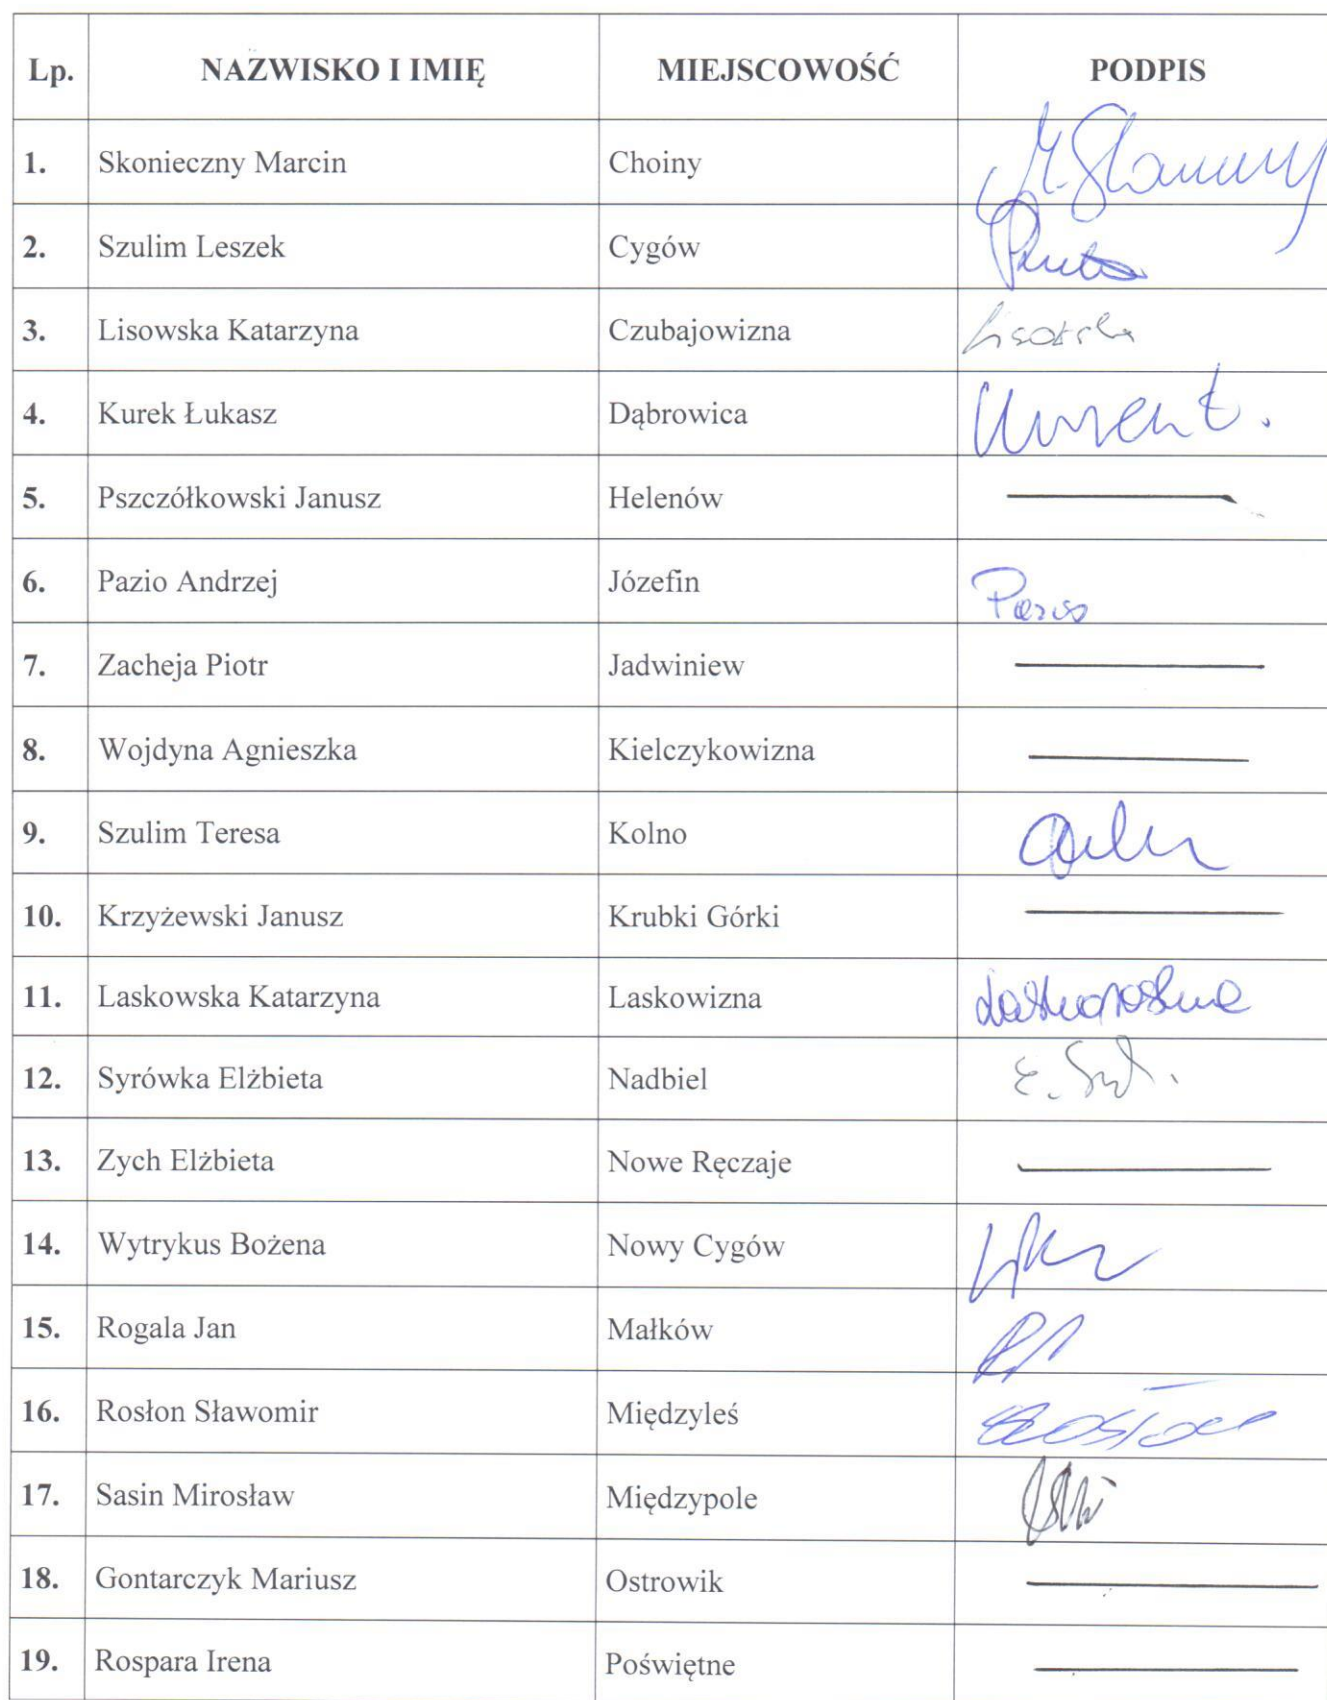 Lp. NAZWISKO I IMIĘ MIEJSCOWOŚĆ PODPIS
1. Skonieczny Marcin Choiny
2. Szulim Leszek Cygów
3. Lisowska Katarzyna Czubajowizna
4. Kurek Łukasz Dąbrowica
5. Pszczółkowski Janusz Helenów
6. Pazio Andrzej Józefin
7. Zacheja Piotr Jadwiniew
8. Wojdyna Agnieszka Kielczykowizna
9. Szulim Teresa Kolno
10. Krzyżewski Janusz Krubki Górki
11. Laskowska Katarzyna Laskowizna
12. Syrówka Elżbieta Nadbiel
13. Zych Elżbieta Nowe Ręczaje
14. Wytrykus Bożena Nowy Cygów
15. Rogala Jan Małków
16. Rosłon Sławomir Międzyleś
17. Sasin Mirosław Międzypole
18. Gontarczyk Mariusz Ostrowik
19. Rospara Irena Poświętne